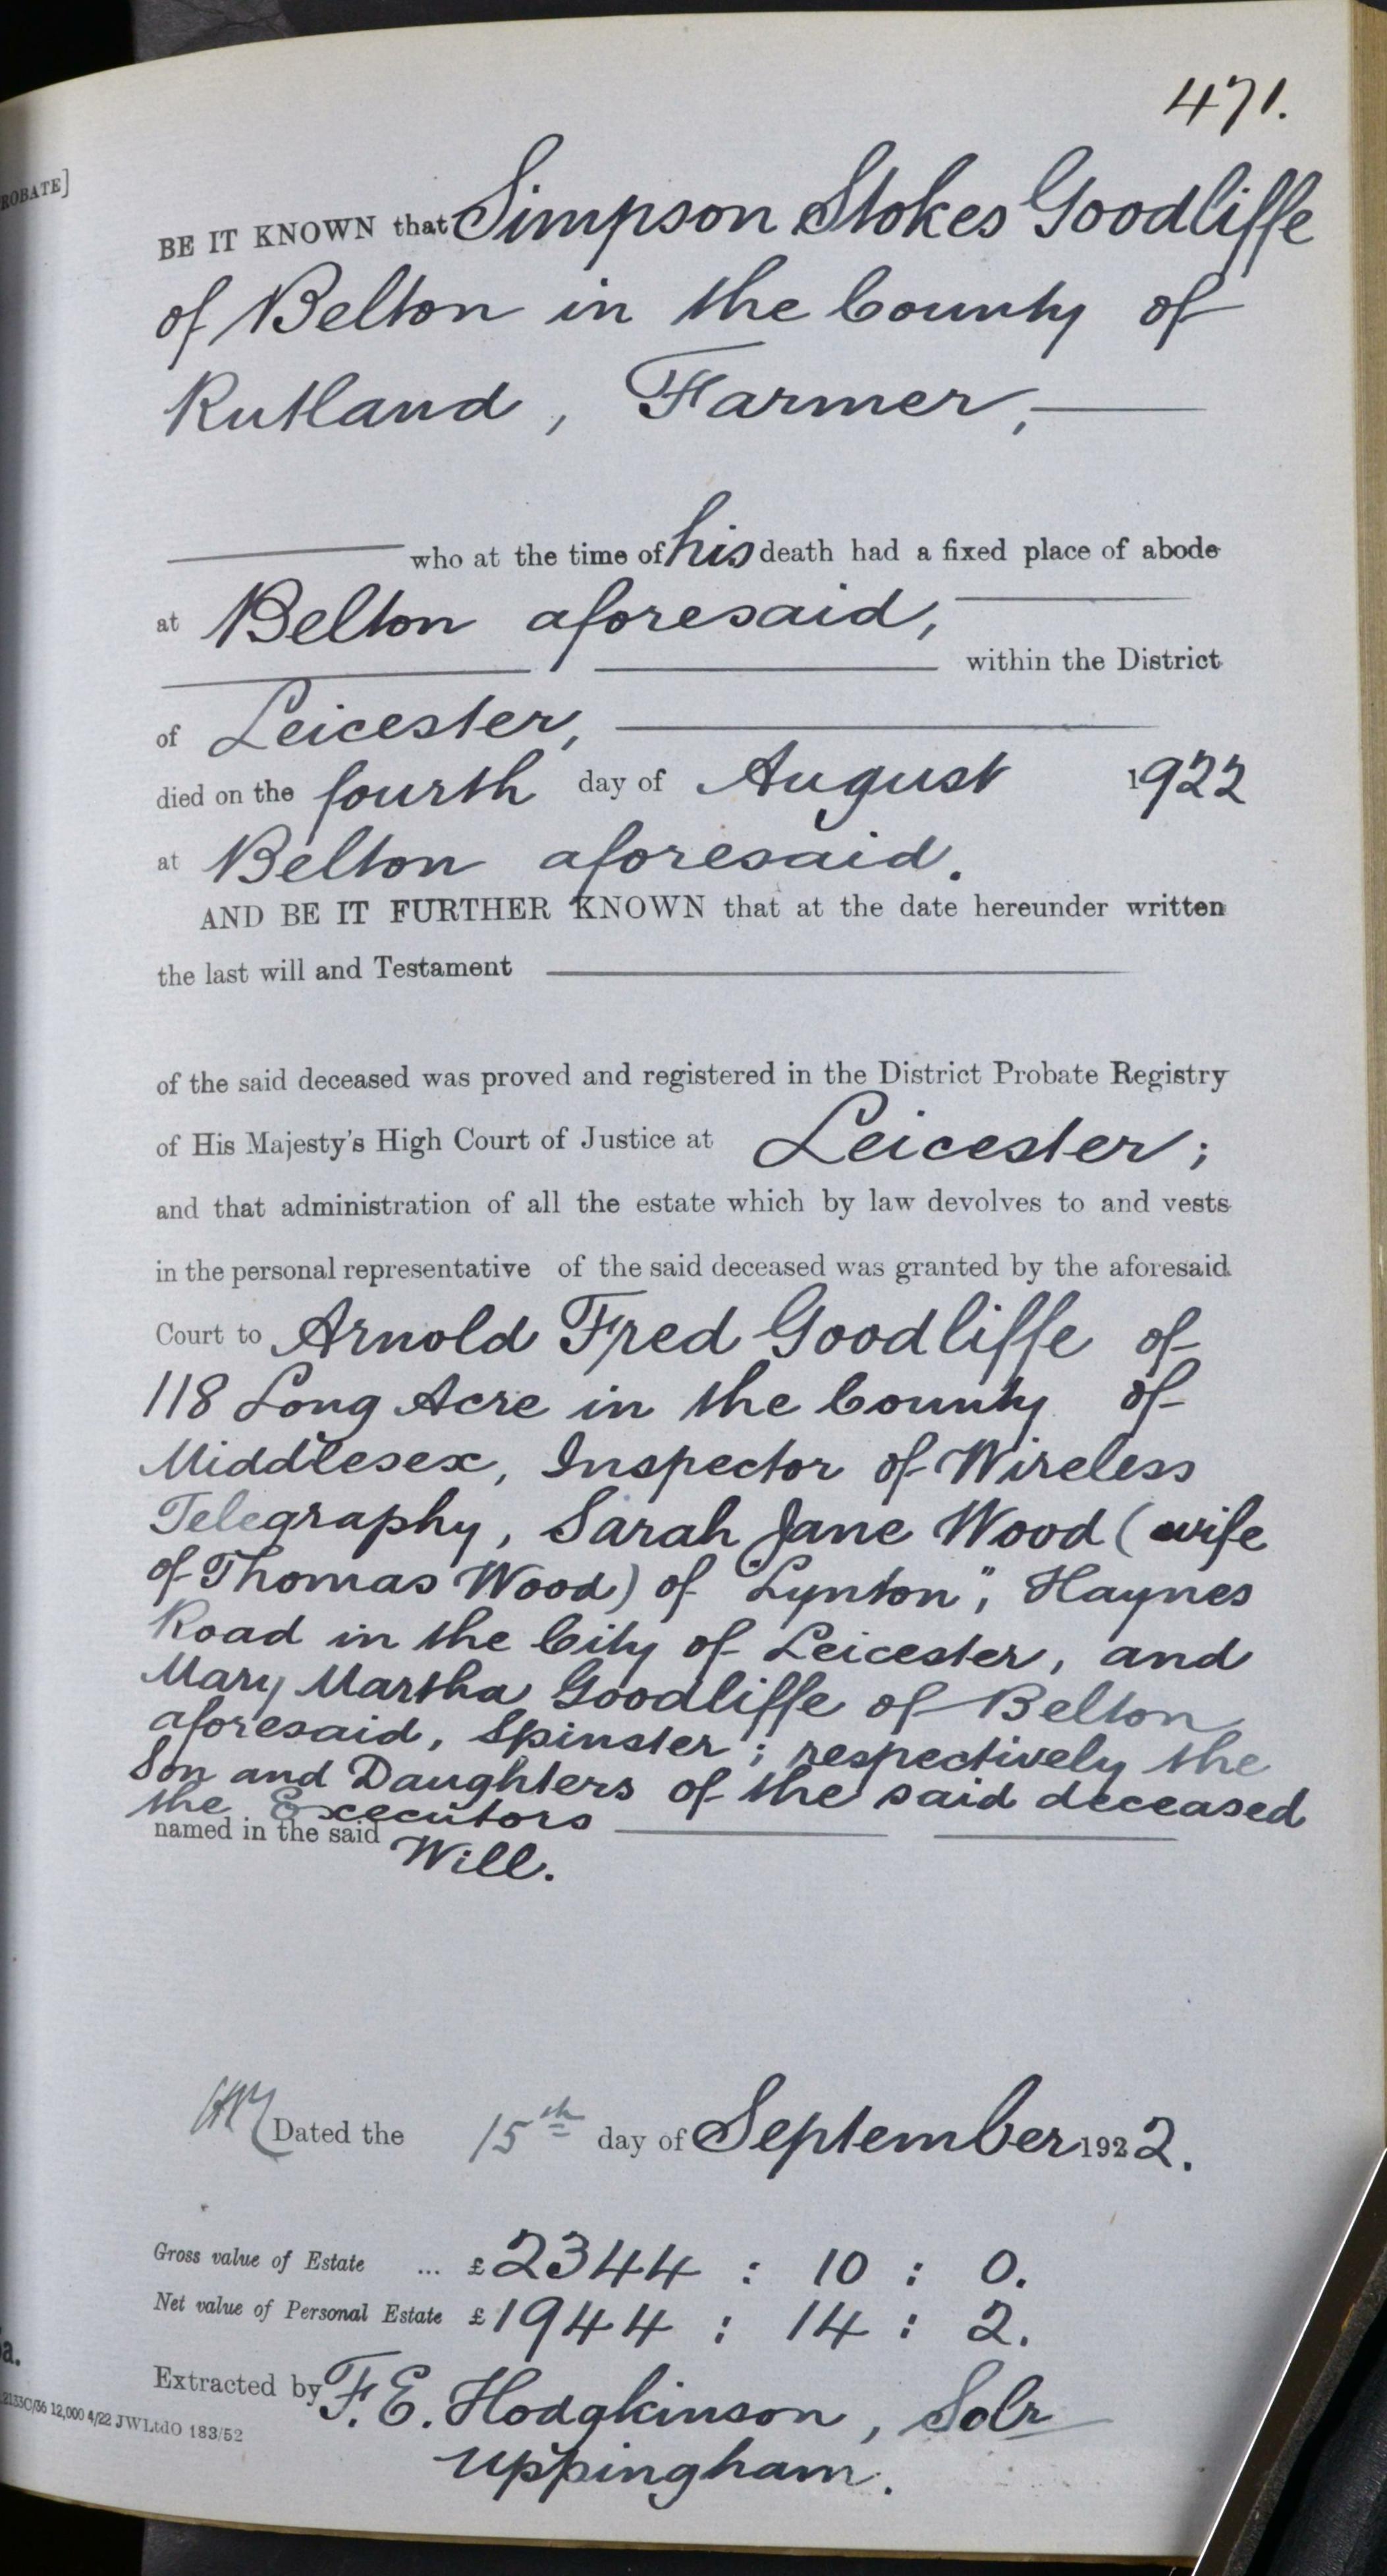 471.
ROBATE]
BE IT KNOWN that Simpson Stokes Goodliffe
of Belton in the County of
Rutland, Farmer,
who at the time of his death had a fixed place of abode
at Belton aforesaid,
within the District
of Leicester,
died on the fourth day of August 1922
at Belton aforesaid.
AND BE IT FURTHER KNOWN that at the date hereunder written
the last will and Testament
of the said deceased was proved and registered in the District Probate Registry
of His Majesty's High Court of Justice at Leicester;
and that administration of all the estate which by law devolves to and vests
in the personal representative of the said deceased was granted by the aforesaid
Court to Arnold Fred Goodliffe of
118 Long Acre in the County of
Middlesex, Inspector of Wireless
Telegraphy, Sarah Jane Wood (wife
of Thomas Wood) of "Lynton", Haynes
Road in the City of Leicester, and
Mary Martha Goodliffe of Belton
aforesaid, Spinster; respectively the
Son and Daughters of the said deceased
the Executors
named in the said Will.
Dated the 15th day of September 1922.
Gross value of Estate ... £2344 : 10 : 0.
Net value of Personal Estate £1944 : 14 : 2.
a.
Extracted by F. E. Hodgkinson, Solr
Uppingham.
2133C/36 12,000 4/22 JWLtdO 183/52